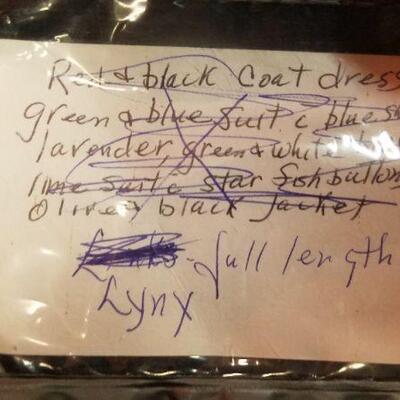 Red & black Coat dress
green & blue suit c blue
lavender, green & white
lime suit c star fish button
Olive & black Jacket
full length
Lynx